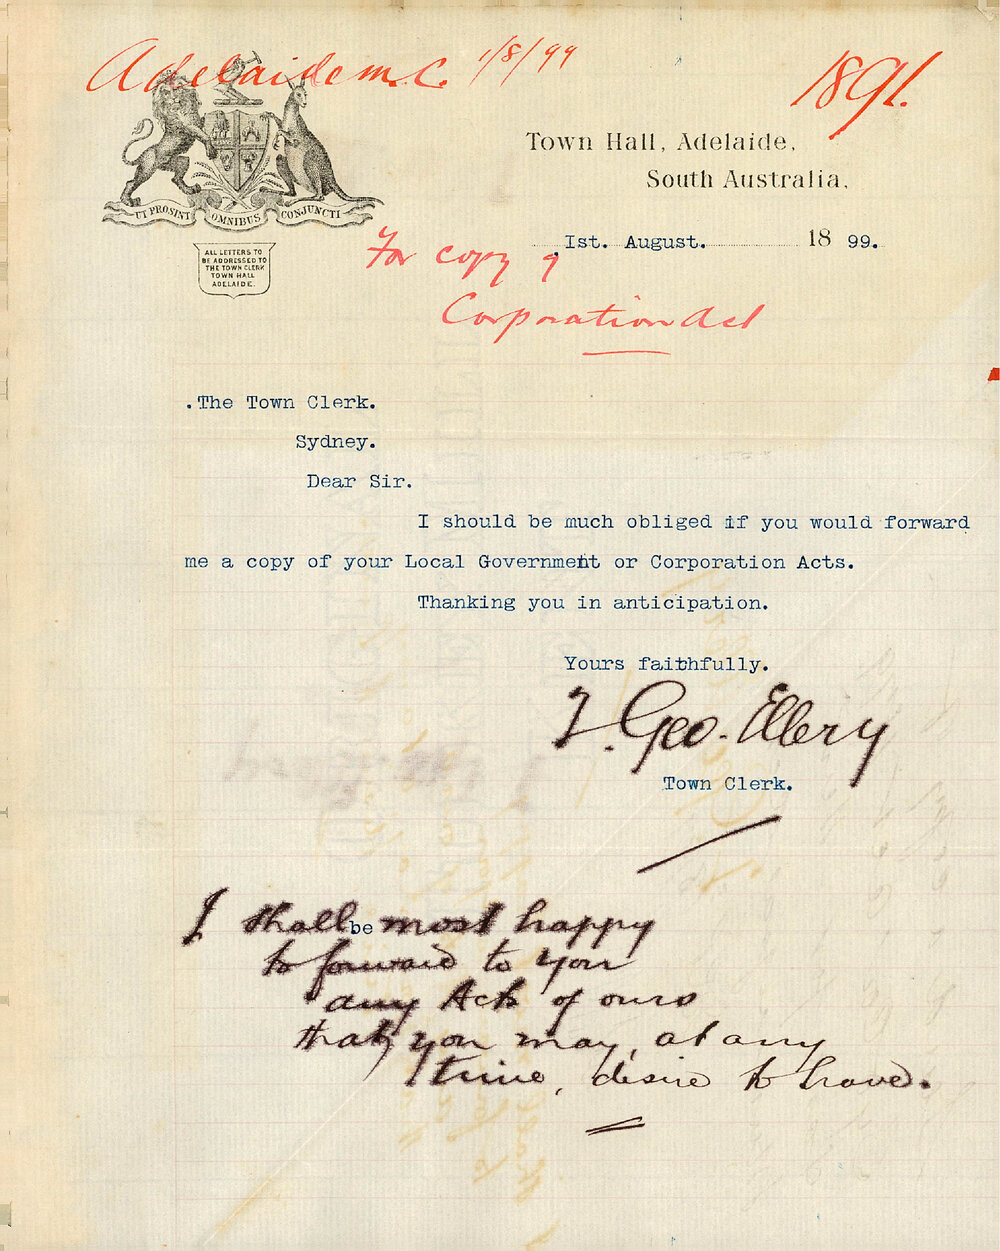 Adelaide M.C. 1/8/99
1891.
UT PROSINT OMNIBUS CONJUNCTI
ALL LETTERS TO
BE ADDRESSED TO
THE TOWN CLERK
TOWN HALL
ADELAIDE.
Town Hall, Adelaide,
South Australia,
Ist. August. 18 99.
For copy of
Corporation Act
.The Town Clerk.
Sydney.
Dear Sir.
I should be much obliged if you would forward
me a copy of your Local Government or Corporation Acts.
Thanking you in anticipation.
Yours faithfully.
T. Geo. Ellery
Town Clerk.
I shall be most happy
to forward to you
any Acts of ours
that you may, at any
time, desire to have.